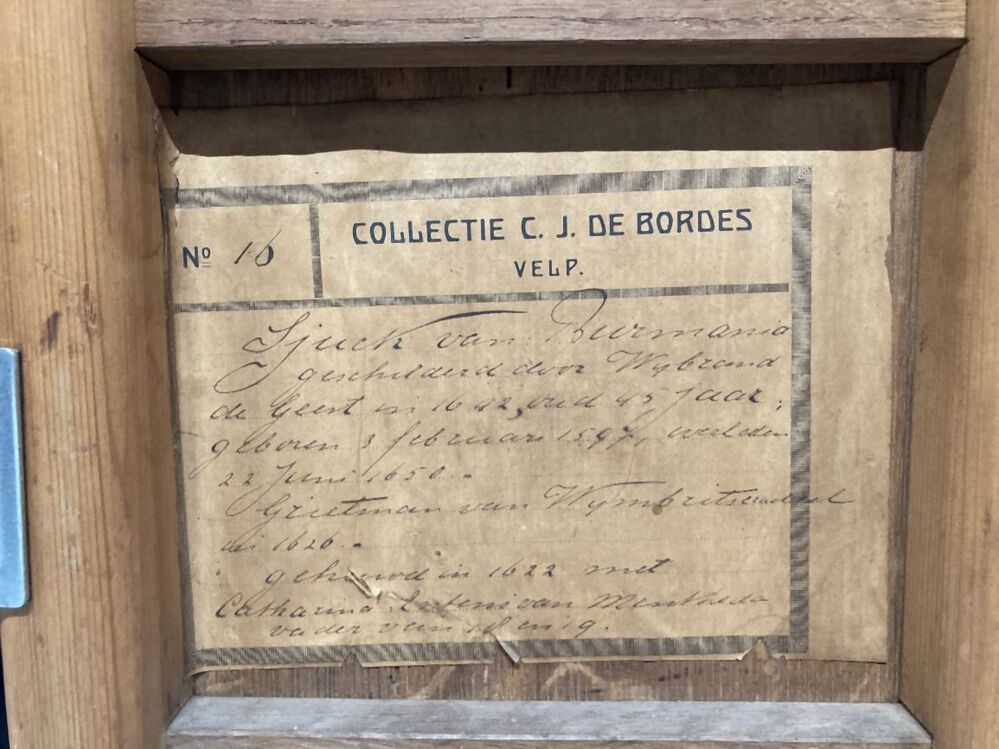 No 16
COLLECTIE C. J. DE BORDES
VELP.
Sjuck van Burmania
geschilderd door Wybrand
de Geest in 1642, oud 45 jaar;
geboren 3 februari 1597, overleden
22 Juni 1650.
Grietman van Wymbritseradeel
in 1626.
gehuwd in 1622 met
Catharina Entens van Mentheda
vader van 18 en 19.